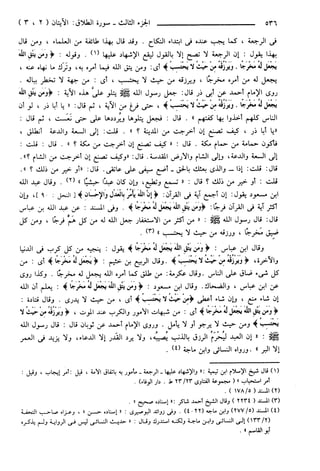 ٥٣٦ الجزء الثالث - سورة الطلاق: الآيتان ( ٢ ، ٣ )
في الرجعة ، كما يجب عنده في ابتداء النكاح . وقد قال بهذا طائفة من العلماء ، ومن قال
بهذا يقول : إن الرجعة لا تصح إلا بالقول ليقع الإشهاد عليها (١) . وقوله : ﴿ ومن يتق الله
يجعل له مخرجا . ويرزقه من حيث لا يحتسب ﴾ أي: ومن يتق الله فيما أمره به، وترك ما نهاه عنه ،
يجعل له من أمره مخرجا ، ويرزقه من حيث لا يحتسب ، أي : من جهة لا تخطر بباله .
وروى الإمام أحمد عن أبي ذر قال : جعل رسول الله ﷺ يتلو علي هذه الآية : ﴿ ومن يتق الله
يجعل له مخرجا . ويرزقه من حيث لا يحتسب ﴾ ، حتى فرغ من الآية ، ثم قال: « يا أبا ذر ، لو أن
الناس كلهم أخذوا بها كفتهم » . قال : فجعل يتلوها ويرددها علي حتى نعست ، ثم قال :
«يا أبا ذر ، كيف تصنع إن أخرجت من المدينة ؟ » . قلت : إلى السعة والدعة أنطلق ،
فأكون حمامة من حمام مكة . قال : « كيف تصنع إن أخرجت من مكة ؟ » . قال : قلت :
إلى السعة والدعة، وإلى الشام والأرض المقدسة. قال: «وكيف تصنع إن أخرجت من الشام ؟».
قال: قلت: إذا ـ والذي بعثك بالحق ـ أضع سيفي على عاتقي . قال: «أو خير من ذلك ؟ ».
قلت : أو خير من ذلك ؟ قال : « تسمع وتطيع، وإن كان عبدا حبشيا » (٢) . وقال عبد الله
ابن مسعود يقول: إن أجمع آية في القرآن: ﴿ إن الله يأمر بالعدل والإحسان ﴾ [ النحل : ٩٠ ]، وإن
أكثر آية في القرآن فرجا: ﴿ ومن يتق الله يجعل له مخرجا ﴾ . وفي المسند : عن عبد الله بن عباس
قال: قال رسول الله ﷺ : « من أكثر من الاستغفار جعل الله له من كل هم فرجا ، ومن كل
ضيق مخرجا ، ورزقه من حيث لا يحتسب » (٣) .
وقال ابن عباس : ﴿ ومن يتق الله يجعل له مخرجا ﴾ يقول : ينجيه من كل كرب في الدنيا
والآخرة، ﴿ ويرزقه من حيث لا يحتسب ﴾ . وقال الربيع بن خثيم : ﴿ يجعل له مخرجا ﴾ أي : من
كل شيء ضاق على الناس . وقال عكرمة: من طلق كما أمره الله يجعل له مخرجا . وكذا روي
عن ابن عباس ، والضحاك. وقال ابن مسعود : ﴿ ومن يتق الله يجعل له مخرجا ﴾ : يعلم أن الله
إن شاء منع ، وإن شاء أعطى ﴿ من حيث لا يحتسب ﴾ أي ، من حيث لا يدري . وقال قتادة :
﴿ ومن يتق الله يجعل له مخرجا ﴾ أي : من شبهات الأمور والكرب عند الموت ، ﴿ ويرزقه من حيث لا
يحتسب ﴾ ومن حيث لا يرجو أو لا يأمل . وروى الإمام أحمد عن ثوبان قال : قال رسول الله
ﷺ : « إن العبد ليحرم الرزق بالذنب يصيبه ، ولا يرد القدر إلا الدعاء، ولا يزيد في العمر
إلا البر » . ورواه النسائي وابن ماجة (٤) .
(١) قال شيخ الإسلام ابن تيمية : « والإشهاد عليها ـ الرجعة ـ مأمور به باتفاق الأمة ، قيل :أمر إيجاب ، وقيل :
أمر استحباب » ( مجموعة الفتاوى ٢٣/٣٣ ط . دار الوفاء) .
(٢) المسند ( ١٧٨/٥ ) .
(٣) المسند ( ٢٢٣٤ ) وقال الشيخ أحمد شاكر : « إسناده صحيح » .
(٤) المسند (٢٧٧/٥) وابن ماجة ( ٤٠٢٢ ) . وفي زوائد البوصيري : « إسناده حسن » ، وعزاه صاحب التحفة
(١٣٣/٢) إلى النسائي وابن ماجة ولكنه استدرك وقال : « حديث النسائي ليس في الرواية ولم يذكره
أبو القاسم » .